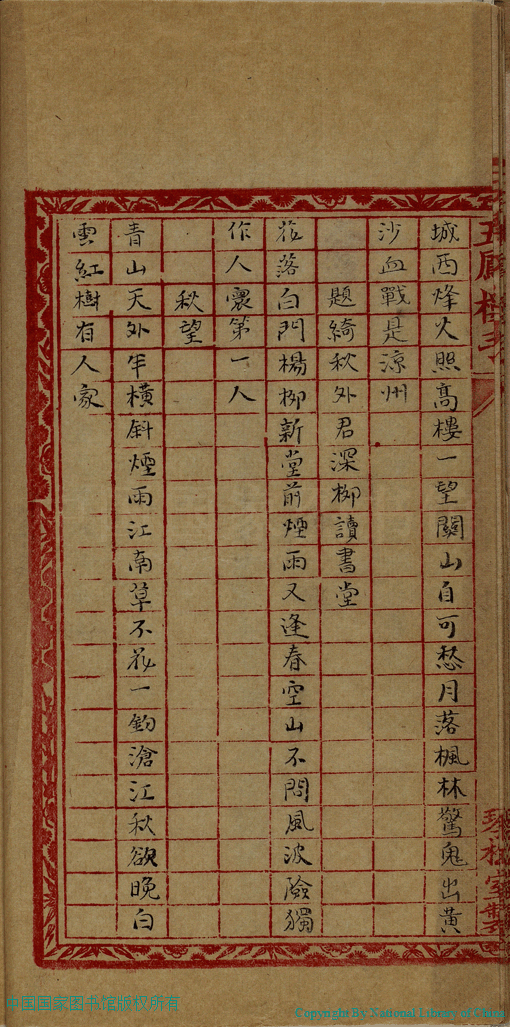 城西烽火照高樓一望關山自可愁月落楓林驚鬼出黃
沙血戰是涼州
題綺秋外君深柳讀書堂
花落白門楊柳新堂前煙雨又逢春空山不問風波險獨
作人寰第一人
秋望
青山天外半橫斜煙雨江南草不花一鈎滄江秋欲晚白
雲紅樹有人家
中国国家图书馆版权所有
Copyright By National Library of China